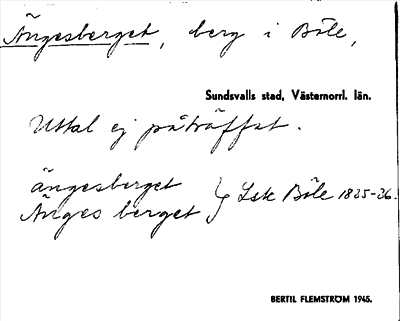 Ängesberget, berg i Böle,
Sundsvalls stad, Västernorrl. län.
Uttal ej påträffat.
ängesberget
Änges berget } Lsk Böle 1825-26.
BERTIL FLEMSTRÖM 1945.